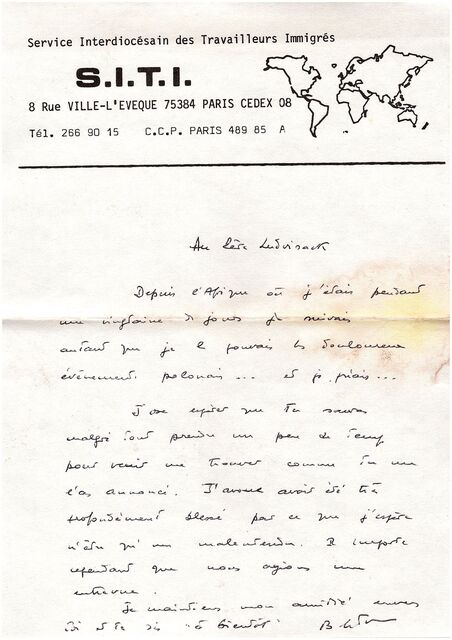 Service Interdiocésain des Travailleurs Immigrés
S.I.T.I.
8 Rue VILLE-L'EVEQUE 75384 PARIS CEDEX 08
Tél. 266 90 15 C.C.P. PARIS 489 85 A
Au Père
Depuis l'Afrique où j'étais pendant
une vingtaine de jours je suivais
autant que je le pouvais les douloureux
événements polonais ... et je priais ...
J'ose espérer que tu sauras
malgré tout prendre un peu de temps
pour venir me trouver comme tu me
l'as annoncé. J'avoue avoir été très
profondément blessé par ce que j'espère
n'être qu'un malentendu. Il importe
cependant que nous ayions une
entrevue.
Je maintiens mon amitié envers
toi et te dis "à bientôt"